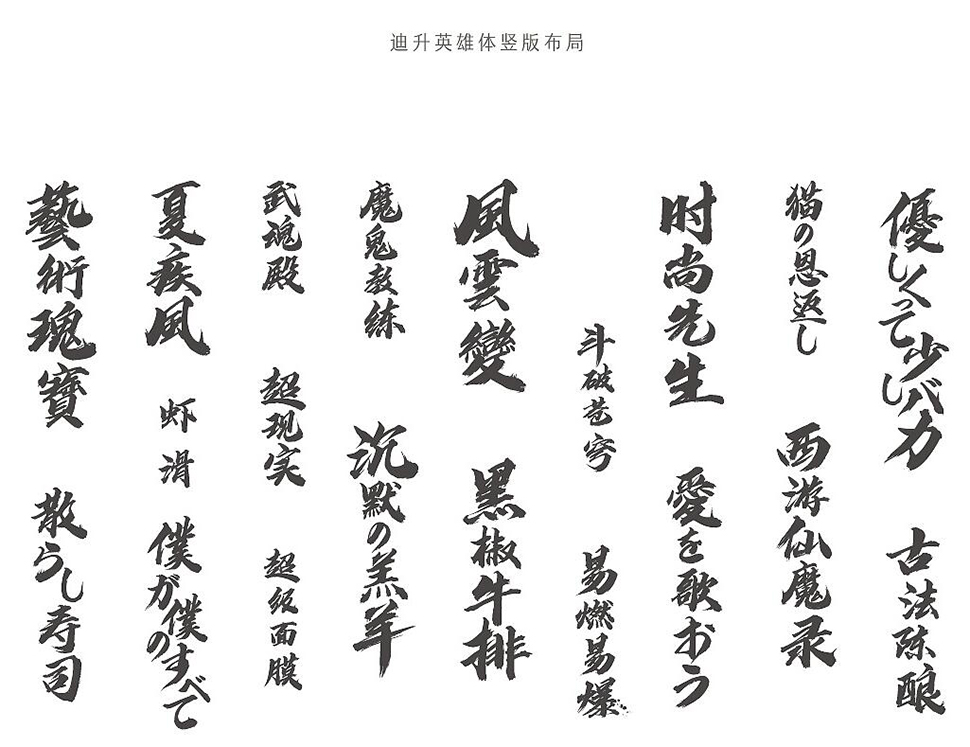 迪升英雄体竖版布局
優しくって少しバカ
古法陈酿
猫の恩返し
西游仙魔录
时尚先生
愛を歌おう
斗破苍穹
易燃易爆
風雲變
黑椒牛排
魔鬼教练
沉默の羔羊
武魂殿
超现实
超级面膜
夏疾风
虾滑
僕が僕のすべて
藝術瑰寶
散らし寿司